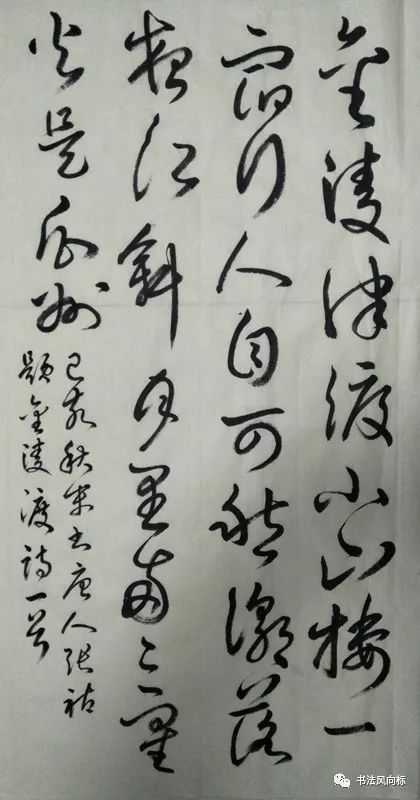 金陵津渡小山樓一
宿行人自可愁潮落
夜江斜月里兩三星
火是瓜州
己亥秋書唐人張祜
題金陵渡詩一首
書法风向标